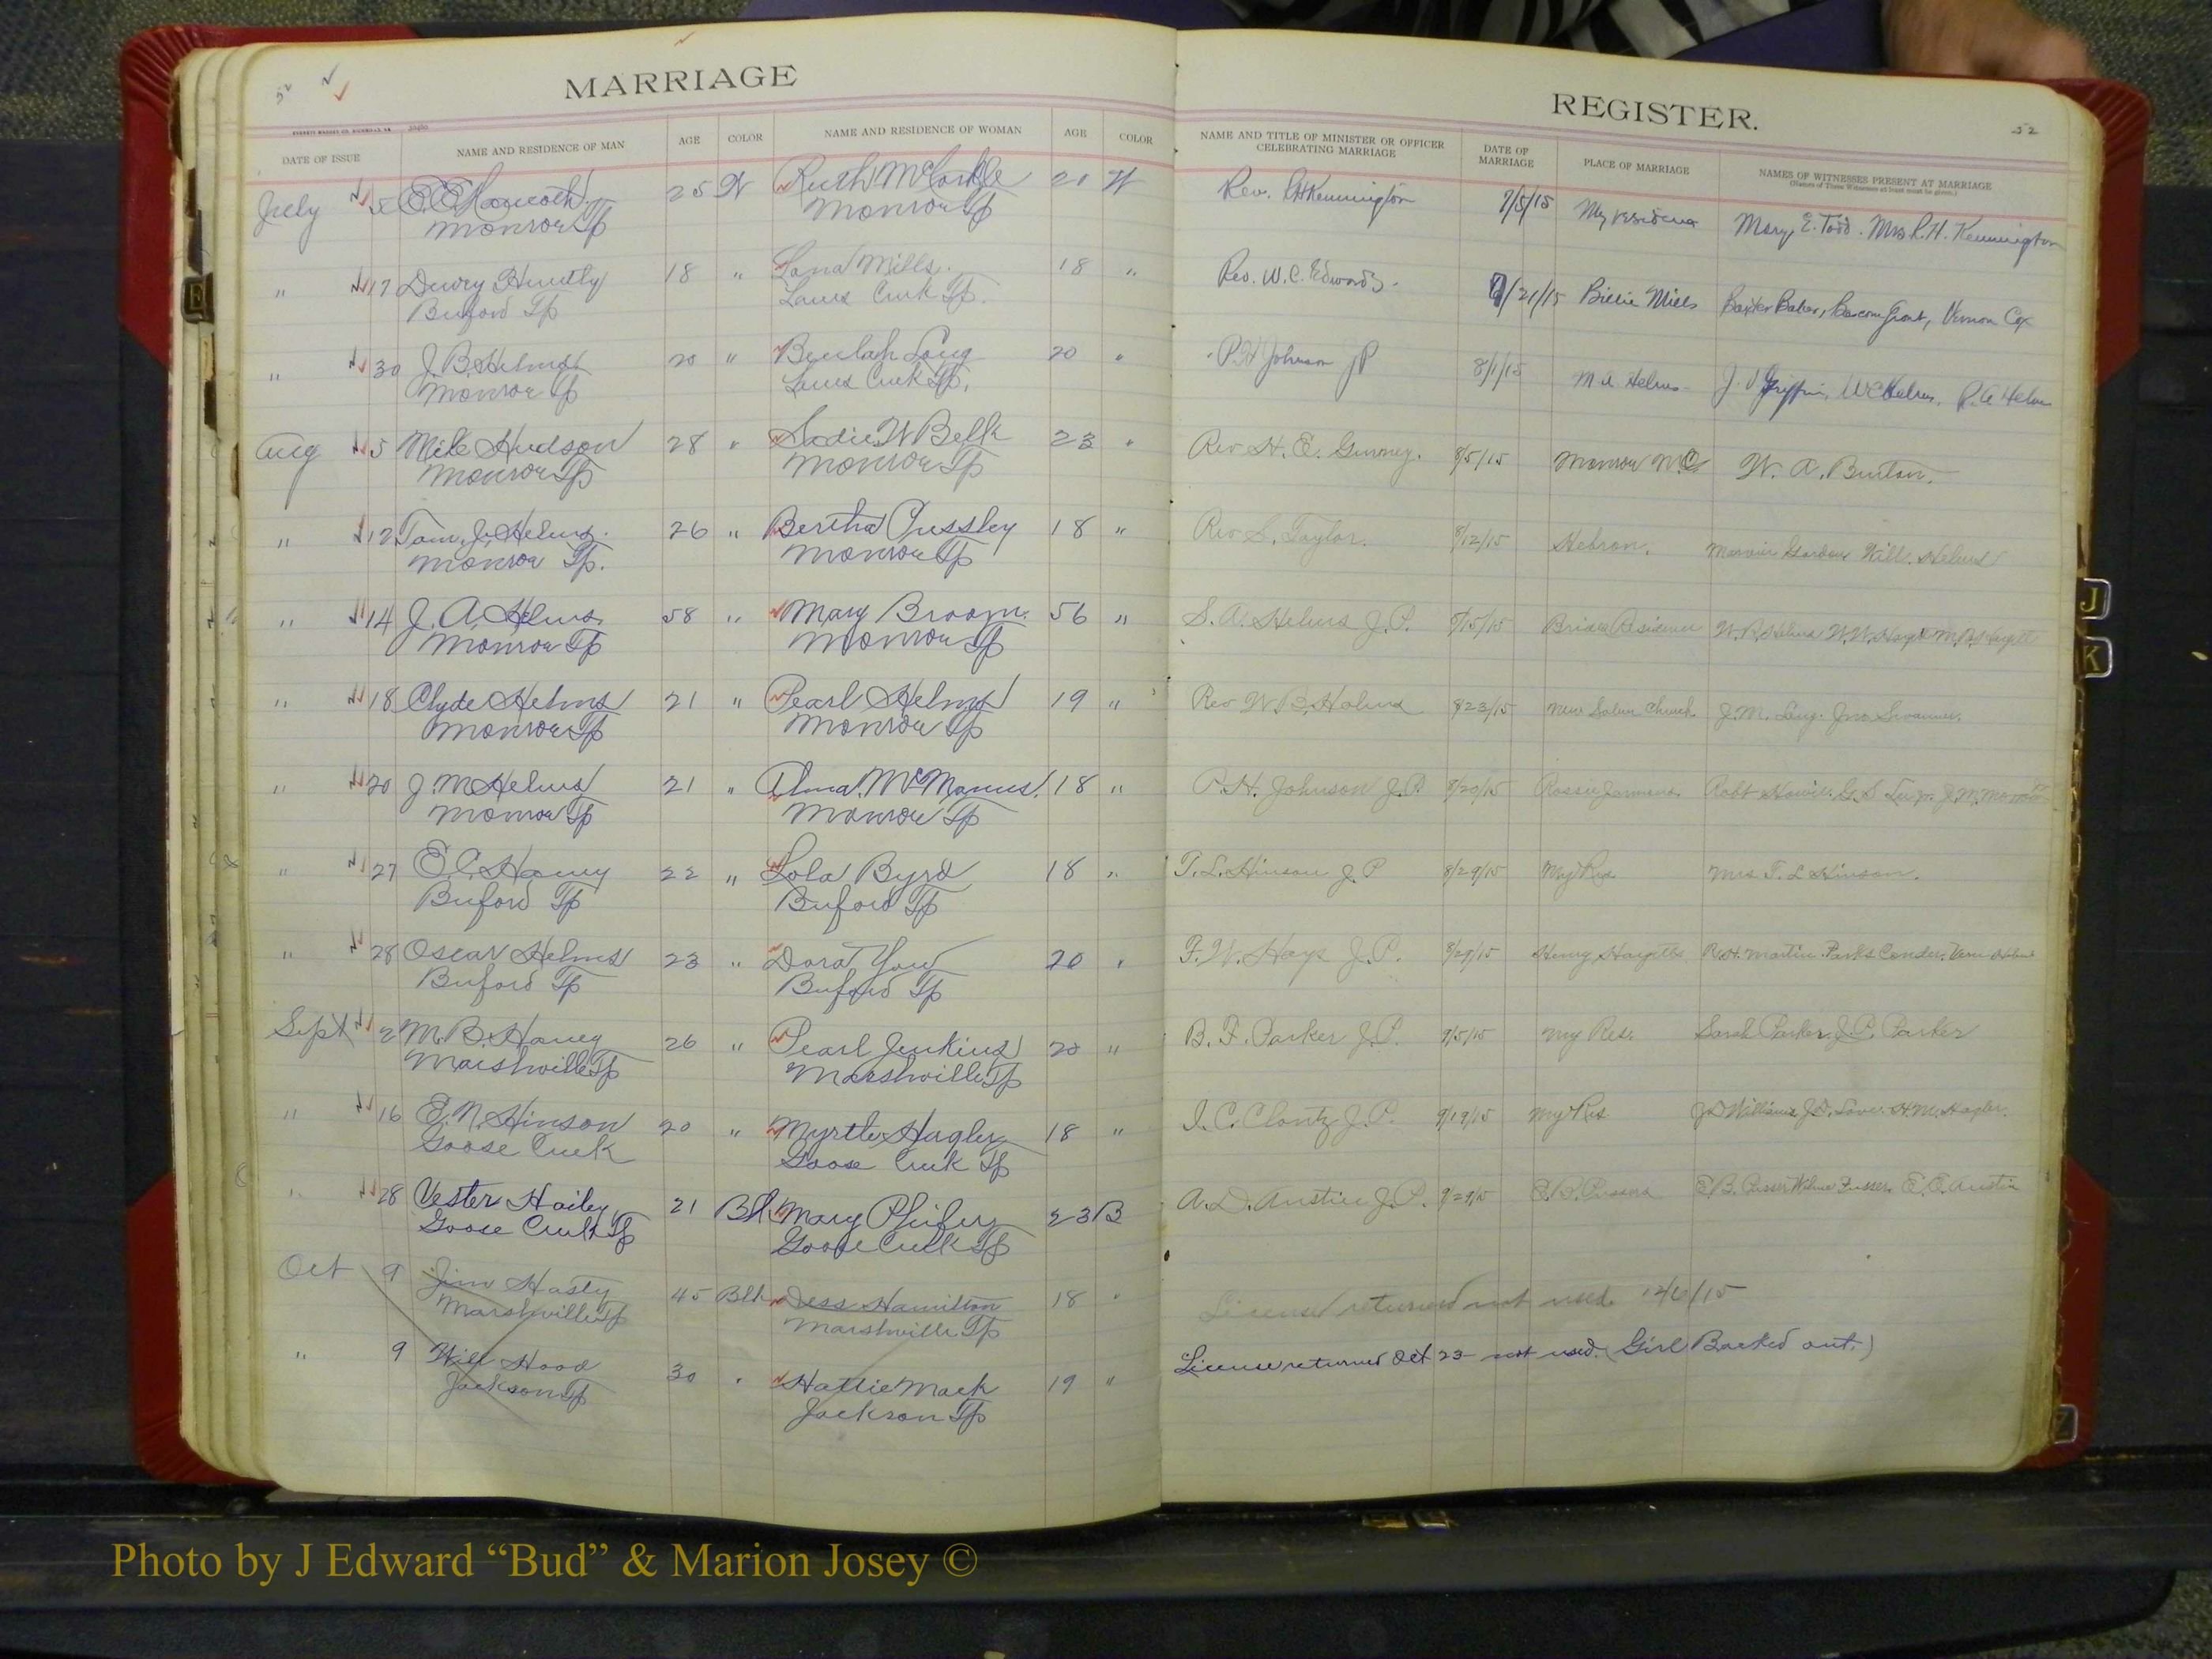 MARRIAGE
REGISTER.
52
DATE OF ISSUE
NAME AND RESIDENCE OF MAN
AGE
COLOR
NAME AND RESIDENCE OF WOMAN
AGE
COLOR
NAME AND TITLE OF MINISTER OR OFFICER
CELEBRATING MARRIAGE
DATE OF
MARRIAGE
PLACE OF MARRIAGE
NAMES OF WITNESSES PRESENT AT MARRIAGE
July 5 25 W Ruth McCorkle 21 W Rev. R.H. Kennington 7/5/15 My residence Mary E. Todd. Mrs R.H. Kennington
Monroe Tp Monroe Tp
" 17 Dewey Huntly 18 " Lana Mills 18 " Rev. W.C. Edwards. 7/21/15 Billie Mills Baxter Baker, Vernon Cox
Buford Tp Lanes Creek Tp.
" 30 J.B. Helms 20 " Beulah Long 20 " P.H. Johnson JP 8/1/15 Helms J. Griffin, W C Helms, Helms
Monroe Tp Lanes Creek Tp.
Aug 5 Mike Hudson 28 " Sadie W Belk 23 " Rev H. E. Gurney. 8/5/15 Monroe NC W. A. Burton.
Monroe Tp Monroe Tp
" 12 Tom J. Helms. 26 " Bertha Pussley 18 " Rev S. Taylor. 8/12/15 Hebron. Will. Helms
Monroe Tp. Monroe Tp
" 14 J. A. Helms 58 " Mary Broom. 56 " S. A. Helms J.P. 8/15/15 Brides Residence W.R. Helms
Monroe Tp Monroe Tp
" 18 Clyde Helms 21 " Pearl Helms 19 " Rev W.B. 8/23/15 New Salem Church. J.M. Long.
Monroe Tp Monroe Tp
" 20 J. M Helms 21 " Alma McManus. 18 " P.H. Johnson J.P. 8/20/15
Monroe Tp Monroe Tp
" 27 E.C. Haney 22 " Lola Byrd 18 " T. L. Hinson J. P 8/29/15 My Res Mrs T. L Hinson.
Buford Tp Buford Tp
" 28 Oscar Helms 23 " Dora Yow 20 " F. W. Hays J.P. 8/29/15 Henry Hargetts R.H. Martin. Parks Conder.
Buford Tp Buford Tp
Sept 2 M. B. Haney 26 " Pearl Jenkins 20 " B. F. Parker J.P. 9/5/15 My Res. Sarah Parker. J.C. Parker
Marshville Tp Marshville Tp
" 16 E. N. Hinson 20 " Myrtle Hagler 18 " I. C. Clontz J.P. 9/19/15 My Res J D Williams, J.D. Love. H M. Hagler.
Goose Creek Goose Creek Tp
" 28 Vester Hailey 21 Blk Mary Phifer 23 B A. D. Austin J.P. 9/29/15 E. C. Austin
Goose Creek Tp Goose Creek Tp
Oct 9 Jim Hasty 45 Blk Dess Hamilton 18 " License returned not used. 12/6/15
Marshville Tp Marshville Tp
" 9 Will Hood 30 " Hattie Mack 19 " License returned Oct 23 not used. (Girl Backed out.)
Jackson Tp Jackson Tp
E
J
K
Z
Photo by J Edward “Bud” & Marion Josey ©